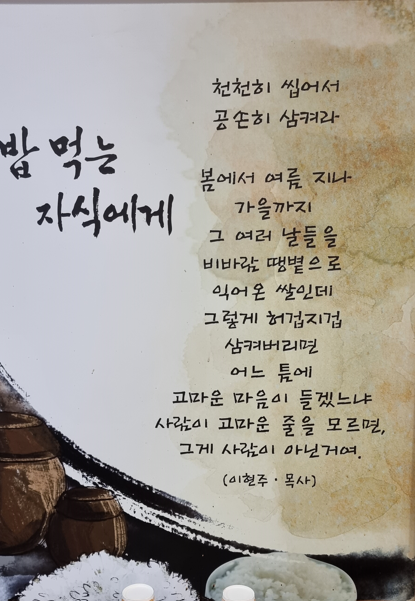 밥 먹는
자식에게
천천히 씹어서
공손히 삼켜라
봄에서 여름 지나
가을까지
그 여러 날들을
비바람 땡볕으로
익어온 쌀인데
그렇게 허겁지겁
삼켜버리면
어느 틈에
고마운 마음이 들겠느냐
사람이 고마운 줄을 모르면,
그게 사람이 아닌거여.
(이현주 · 목사)